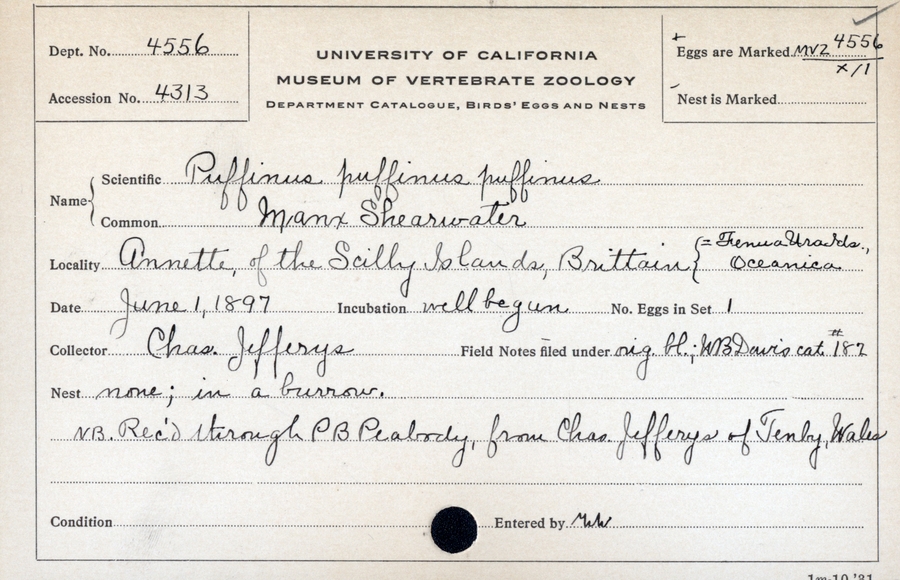 Dept. No. 4556
Accession No. 4313
UNIVERSITY OF CALIFORNIA
MUSEUM OF VERTEBRATE ZOOLOGY
DEPARTMENT CATALOGUE, BIRDS' EGGS AND NESTS
Eggs are Marked MVZ 4556
x/1
Nest is Marked
Name
Scientific Puffinus puffinus puffinus
Common Manx Shearwater
Locality Annette, of the Scilly Islands, Brittain {= Oceanica
Date June 1, 1897 Incubation well begun No. Eggs in Set 1
Collector Chas. Jefferys Field Notes filed under orig. bl.; WB Davis cat. #187
Nest none; in a burrow.
NB. Rec'd through PB Peabody, from Chas. Jefferys of Tenby, Wales
Condition Entered by
1m-10,'31